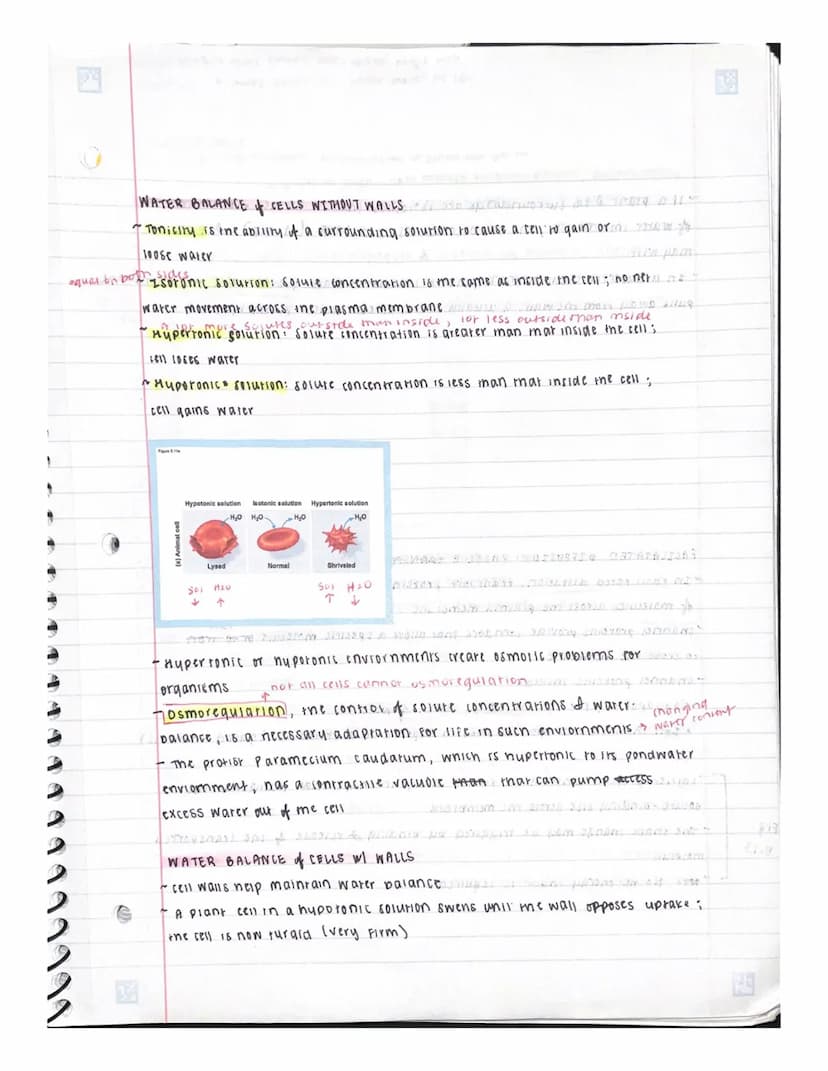 WATER BALANCE of CELLS WITHOUT WALLS
~ Tonicity is the ability of a surrounding solution to cause a cell to gain or
loose water
equal on both sides
~ Isotonic solution: solute concentration is the same as inside the cell; no net
water movement across the plasma membrane
a lot more solutes outside than inside, lot less outside than inside
~ Hypertonic solution: solute concentration is greater than that inside the cell;
cell loses water
~ Hypotonic solution: solute concentration is less than that inside the cell;
cell gains water
Hypotonic solution Isotonic solution Hypertonic solution
H₂O H₂O H₂O H₂O
(a) Animal cell
Lysed Normal Shriveled
Sol H2O Sol H2O
↓ ↑ ↑ ↓
- Hypertonic or hypotonic enviornments create osmotic problems for
organisms
↑ not all cells cannot osmoregulation
- Osmoregulation, the control of solute concentrations & water
balance, is a necessary adaptation for life in such enviornments → changing
water content
- The protist Paramecium caudatum, which is hypertonic to its pondwater
enviornment, has a contractile vacuole than that can pump access
excess water out of the cell
WATER BALANCE of CELLS W/ WALLS
~ cell walls help maintain water balance
~ A plant cell in a hypotonic solution swells until the wall opposes uptake;
the cell is now turgid (very firm)